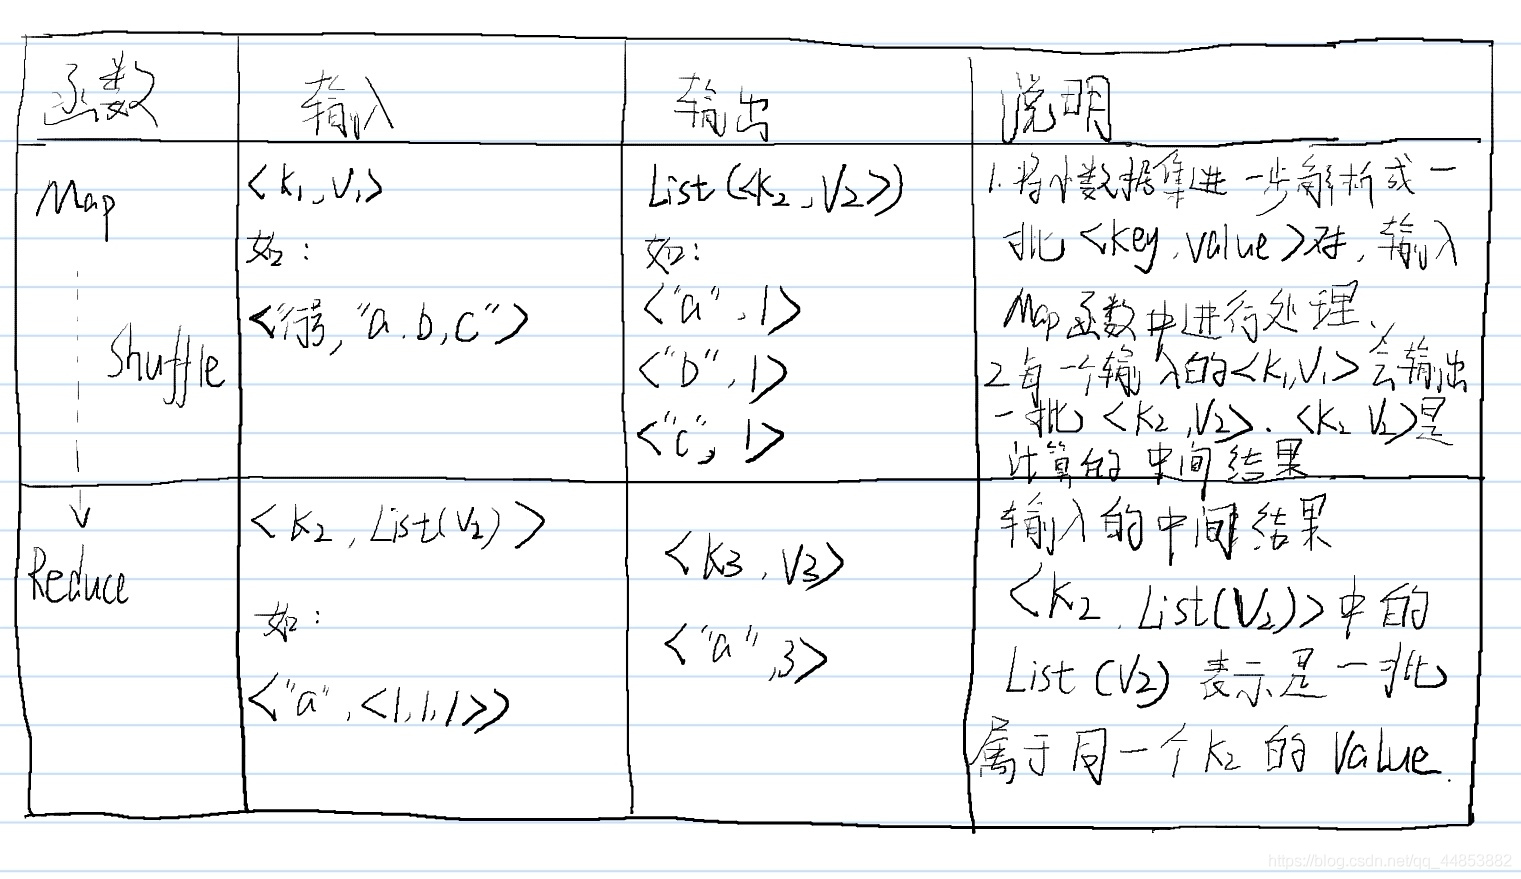 函数 输入 输出 说明
Map
Shuffle
<k1,V1>
如:
<"行号,"a.b,c">
List(<k2,V2>)
如:
<"a",1>
<"b",1>
<"c",1>
1.将小数据集进一步解析成一
批<key,value>对,输入
Map函数中进行处理、
2.每一个输入的<k1,V1>会输出
一批<k2,V2>.<k2 V2>是
计算的中间结果
Reduce
<k2,List(V2)>
如:
<"a",<1,1,1>>
<k3,V3>
<"a",3>
输入的中间结果
<k2,List(V2)>中的
List(V2)表示是一批
属于同一个k2的Value.
https://blog.csdn.net/qq_44853882